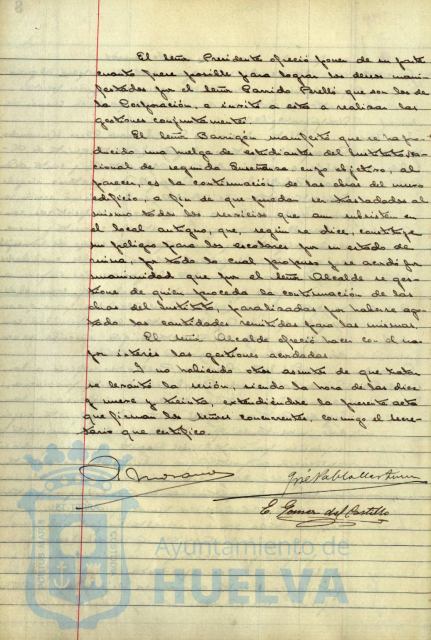 El Señor Presidente ofreció poner de su parte
cuanto fuere posible para lograr los deseos mani-
festados por el Señor Garrido Perelló que son los de
la Corporación, e invitó a esta a realizar las
gestiones conjuntamente.
El Señor Barrigón manifestó que se ha pro-
ducido una huelga de estudiantes del Instituto Na-
cional de segunda Enseñanza cuyo objetivo, al
parecer, es la continuación de las obras del nuevo
edificio, a fin de que puedan ser trasladados al
mismo todos los servicios que aun subsisten en
el local antiguo, que, según se dice, constituye
un peligro para los escolares por su estado de
ruina, por todo lo cual propuso y se acordó por
unanimidad que por el Señor Alcalde se ges-
tione de quien proceda la continuación de las
obras del Instituto, paralizadas por haberse ago-
tado las cantidades remitidas para las mismas.
El Señor Alcalde ofreció hacer con el ma-
yor interés las gestiones acordadas.
Y no habiendo otros asuntos de que tratar
se levantó la sesión, siendo la hora de las diez
y nueve y treinta, extendiéndose la presente acta
que firman los señores concurrentes, conmigo el Secre-
tario que certifico.
Moreno
José Pablo
E. Gomez del Castillo
Ayuntamiento de
HUELVA